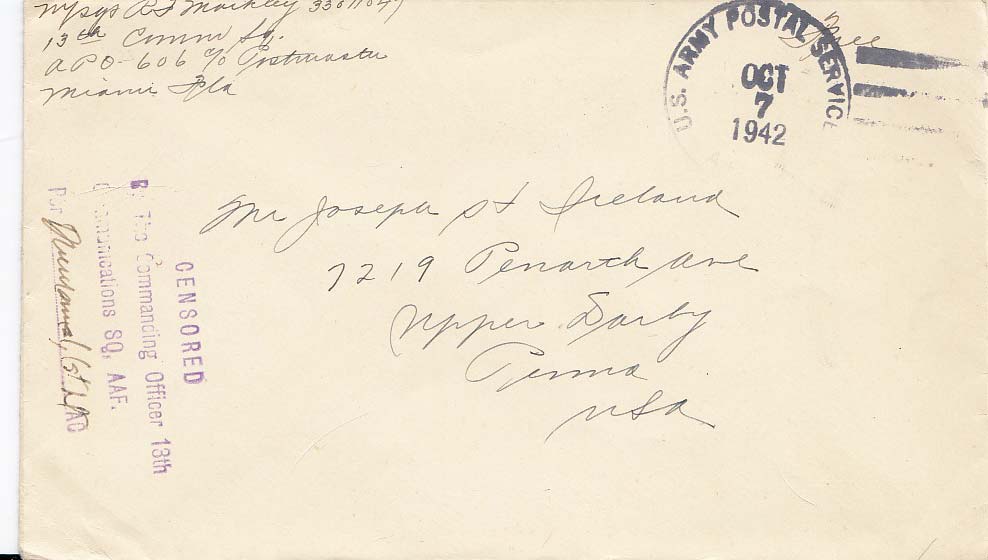 13th Comm Sq.
APO-606 c/o Postmaster
Miami Fla
Free
U.S. ARMY POSTAL SERVICE
OCT
7
1942
Mr Joseph H Ireland
7219 Penarth Ave
Upper Darby
Penna
USA
CENSORED
By The Commanding Officer 13th
Communications SQ, AAF.
For 1st Lt AC